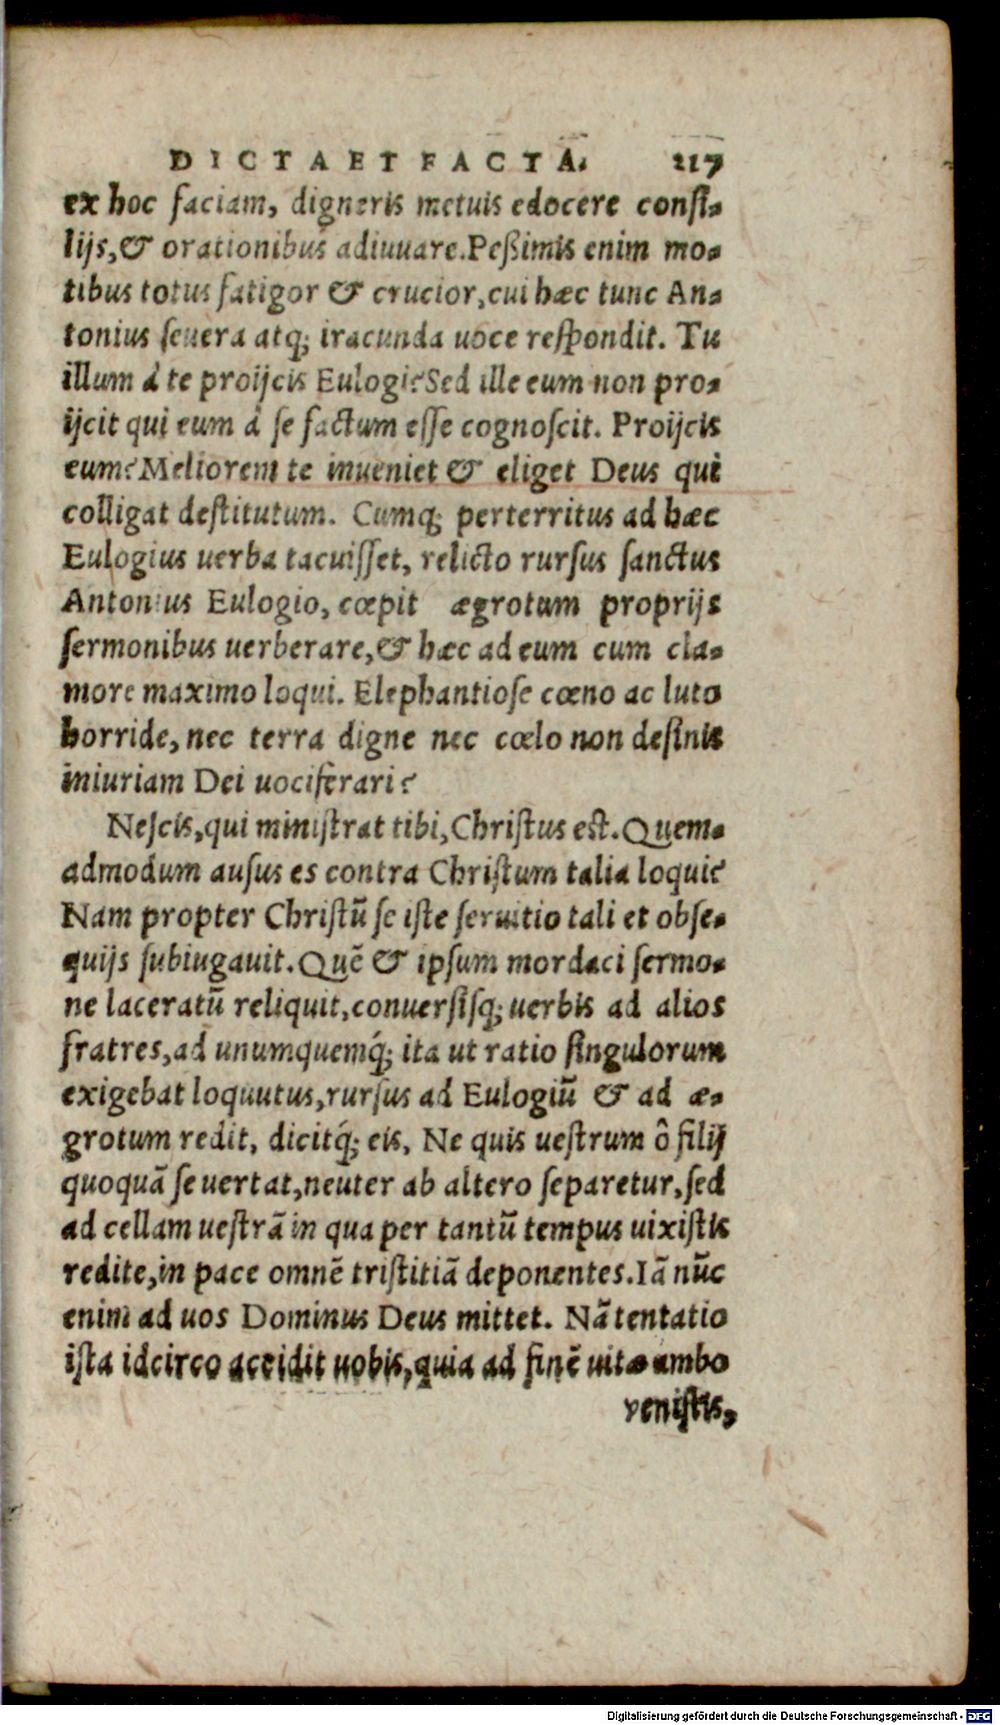 DICTA ET FACTA. 117
ex hoc faciam, digneris me tuis edocere consi-
lijs, & orationibus adiuuare. Peßimis enim mo-
tibus totus fatigor & crucior, cui hæc tunc An-
tonius seuera atq; iracunda uoce respondit. Tu
illum à te proijcis Eulogi? Sed ille eum non pro-
ijcit qui eum à se factum esse cognoscit. Proijcis
eum? Meliorem te inueniet & eliget Deus qui
colligat destitutum. Cumq; perterritus ad hæc
Eulogius uerba tacuisset, relicto rursus sanctus
Antonius Eulogio, cœpit ægrotum proprijs
sermonibus uerberare, & hæc ad eum cum cla-
more maximo loqui. Elephantiose cœno ac luto
horride, nec terra digne nec cœlo non desinis
iniuriam Dei uociferari?
Nescis, qui ministrat tibi, Christus est. Quem-
admodum ausus es contra Christum talia loqui?
Nam propter Christũ se iste seruitio tali et obse-
quijs subiugauit. Quẽ & ipsum mordaci sermo-
ne laceratũ reliquit, conuersisq; uerbis ad alios
fratres, ad unumquemq́; ita ut ratio singulorum
exigebat loquutus, rursus ad Eulogiũ & ad æ-
grotum redit, dicitq́; eis, Ne quis uestrum ô filij
quoquã se uertat, neuter ab altero separetur, sed
ad cellam uestrã in qua per tantũ tempus uixistis
redite, in pace omnẽ tristitiã deponentes. Iã nũc
enim ad uos Dominus Deus mittet. Nã tentatio
ista idcirco accidit uobis, quia ad finẽ uitæ ambo
venistis,
Digitalisierung gefördert durch die Deutsche Forschungsgemeinschaft - DFG